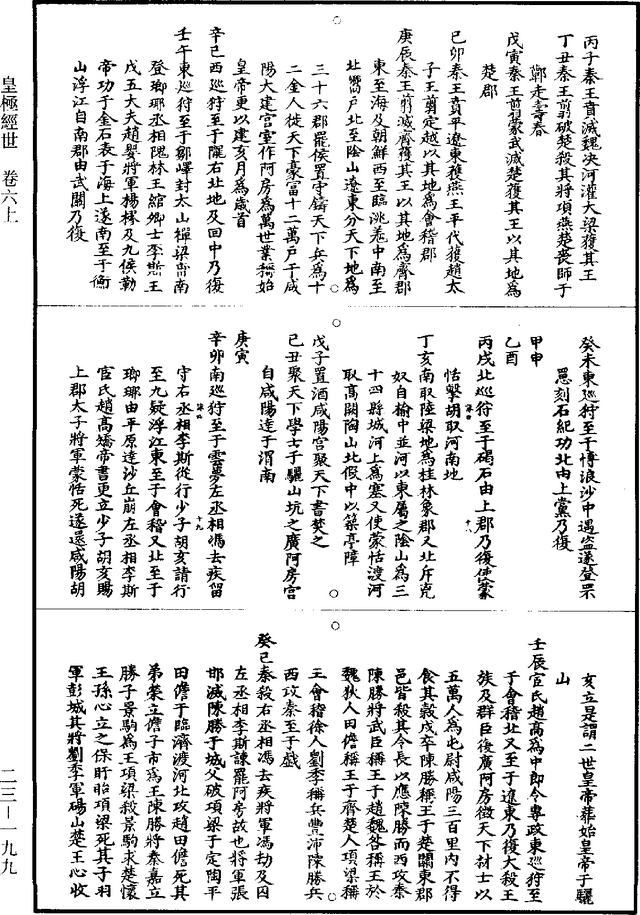 皇極經世 卷六上
二三—一九九
丙子秦王賁滅魏决河灌大梁獲其王
丁丑秦王翦破楚殺其將項燕楚喪師于
鄭走壽春
戊寅秦王翦蒙武滅楚獲其王以其地爲
楚郡
己卯秦王賁平遼東獲燕王平代獲趙太
子王翦定越以其地爲會稽郡
庚辰秦王翦滅齊獲其王以其地爲齊郡
東至海及朝鮮西至臨洮羗中南至
北嚮戶北至陰山遼東分天下地爲
三十六郡罷侯置守鑄天下兵爲十
二金人徙天下豪富十二萬戶于咸
陽大建宫室作阿房爲萬世業稱始
皇帝更以建亥月爲歲首
辛巳西巡狩至于隴右北地及回中乃復
壬午東巡狩至于鄒嶧封太山禪梁甫南
登瑯琊丞相隗林王綰卿士李斯王
戊五大夫趙嬰將軍楊樛及九侯勒
帝功于金石表于海上遂南至于衡
山浮江自南郡由武關乃復
癸未東巡狩至于博浪沙中遇盜遂登罘
罳刻石紀功北由上黨乃復
甲申
乙酉
丙戌北巡狩至于碣石由上郡乃復使蒙
恬擊胡取河南地
丁亥南取陸梁地爲桂林象郡又北斥兇
奴自榆中並河以東屬之陰山爲三
十四縣城河上爲塞又使蒙恬渡河
取高闕陶山北假中以築亭障
戊子置酒咸陽宫聚天下書焚之
己丑聚天下學士于驪山坑之廣阿房宫
自咸陽達于渭南
庚寅
辛卯南巡狩至于雲夢左丞相馮去疾留
守右丞相李斯從行少子胡亥請行
至九疑浮江東至于會稽又北至于
瑯琊由平原達沙丘崩左丞相李斯
宦氏趙高矯帝書更立少子胡亥賜
上郡太子將軍蒙恬死遂還咸陽胡
亥立是謂二世皇帝葬始皇帝于驪
山
壬辰宦氏趙高爲中郎令專政東巡狩至
于會稽北又至于遼東乃復大殺王
族及群臣復廣阿房徴天下材士以
五萬人爲屯尉咸陽三百里内不得
食其穀戍卒陳勝稱王于楚關東郡
邑皆殺其令長以應陳勝而西攻秦
陳勝將武臣稱王于趙魏咎稱王於
魏狄人田儋稱王于齊楚人項梁稱
王會稽徐人劉季稱兵豐沛陳勝兵
西攻秦至于戲
癸巳秦殺右丞相馮去疾將軍馮劫及囚
左丞相李斯諫罷阿房故也將軍張
邯滅陳勝于城父破項梁于定陶平
田儋于臨濟渡河北攻趙田儋死其
弟榮立儋子市爲王陳勝將秦嘉立
勝子景駒爲王項梁殺景駒求楚懷
王孫心立之保盱眙項梁死其子羽
軍彭城其將劉季軍碭山楚王心收